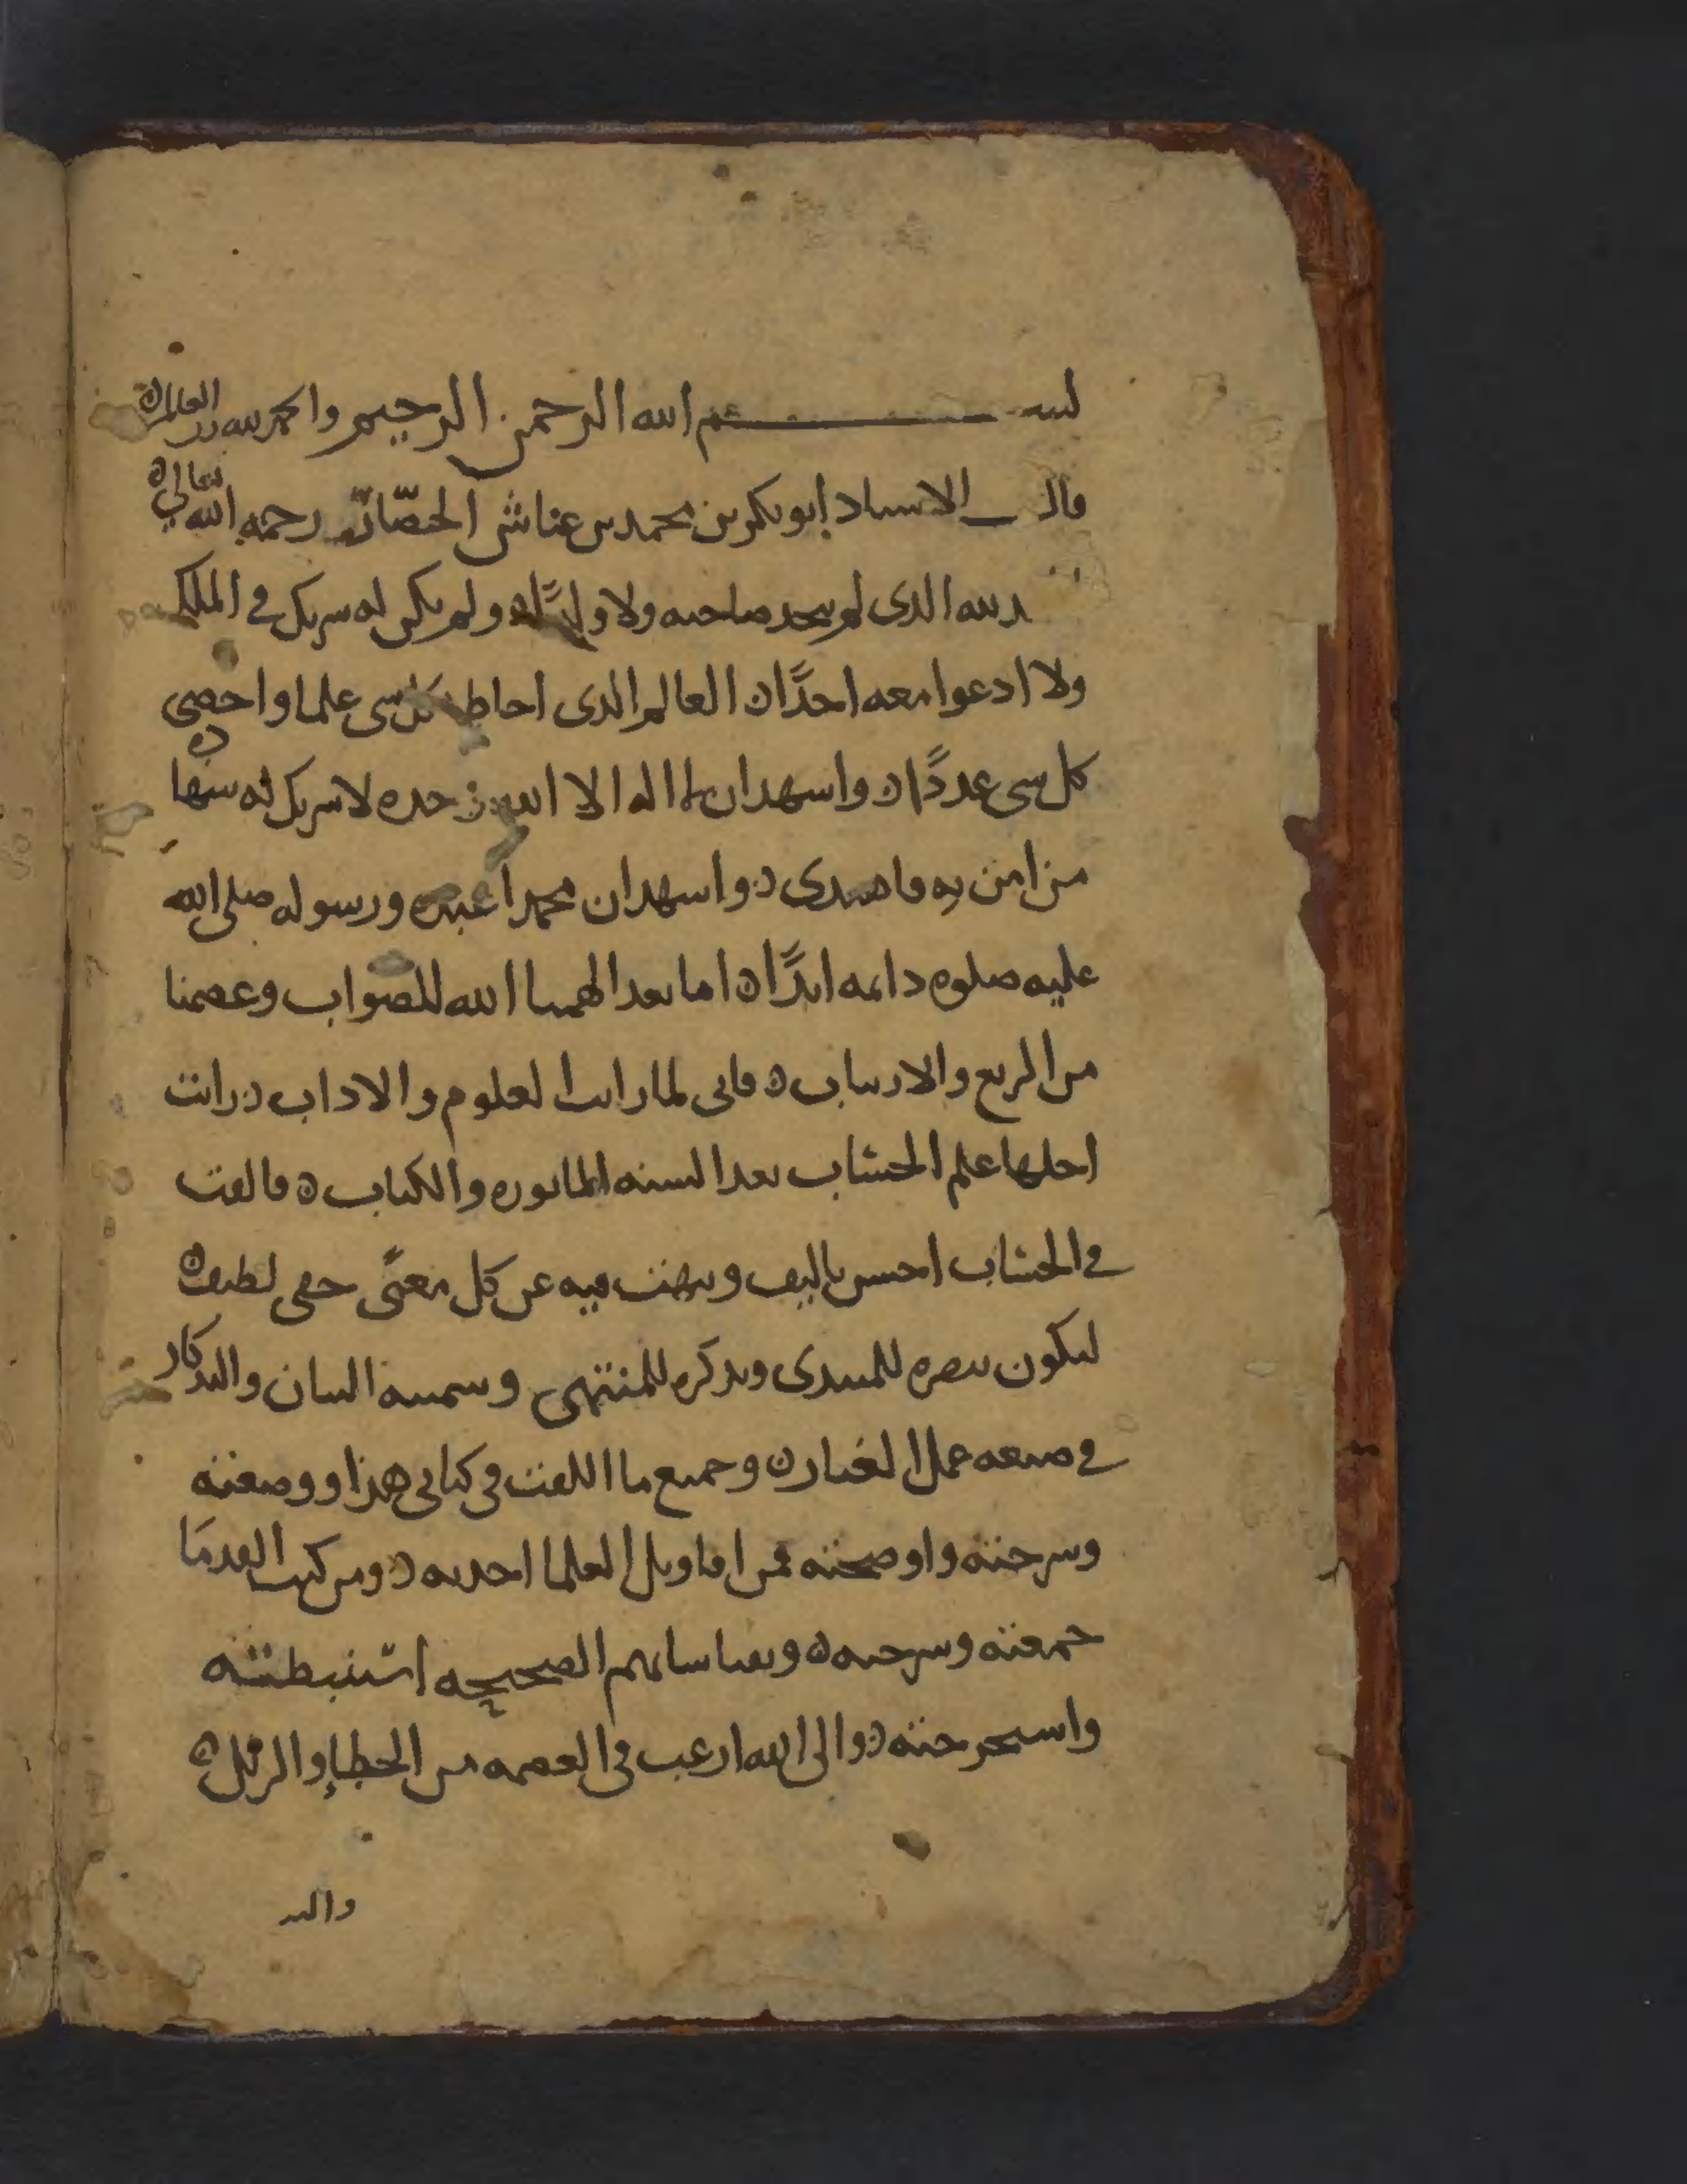 بسم الله الرحمن الرحيم والحمد لله رب العالمين
قال الاستاد ابو بكر بن محمد بن عياش الحصار رحمه الله تعالى
لله الدى لم يتخد صاحبه ولا ولدًا ولم يكن له سريك في الملك
ولا ادعوا معه احدًا العالم الدى احاط بكل سى علما واحصى
كل سى عددًا واسهد ان لا اله الا الله وحده لا سريك له سها
من امن به فاهتدى واسهد ان محمدا عبده ورسوله صلى الله
عليه صلوه دايمه ابدًا اما بعد الهمنا الله للصواب وعصمنا
من الزيغ والارتياب فانى لما رايت العلوم والاداب رايت
اجلها علم الحساب بعد السنه الماثوره والكتاب فالفت
في الحساب احسن تاليف ونبهت فيه عن كل معنًى خفى لطيف
ليكون تبصره للمبتدى وتدكره للمنتهى وسميته البيان والتدكار
في صنعه عمل الغبار وجميع ما اللفت في كتابى هذا ووصفته
وسرحته واوضحته فمن اقاويل العلما اخدته ومن كتب القدمَا
جمعته وسرحته وبقياساتهم الصحيحه استنبطته
واستخرجته والى الله ارغب في العصمه من الخطإ والزلل
والت